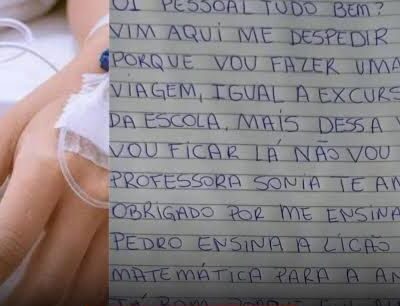 OI PESSOAL TUDO BEM?
VIM AQUI ME DESPEDIR
PORQUE VOU FAZER UMA
VIAGEM, IGUAL A EXCURS
DA ESCOLA, MAIS DESSA V
VOU FICAR LÁ NÃO VOU
PROFESSORA SONIA TE AM
OBRIGADO POR ME ENSINA
PEDRO ENSINA A LICÃO
MATEMÁTICA PARA A AN